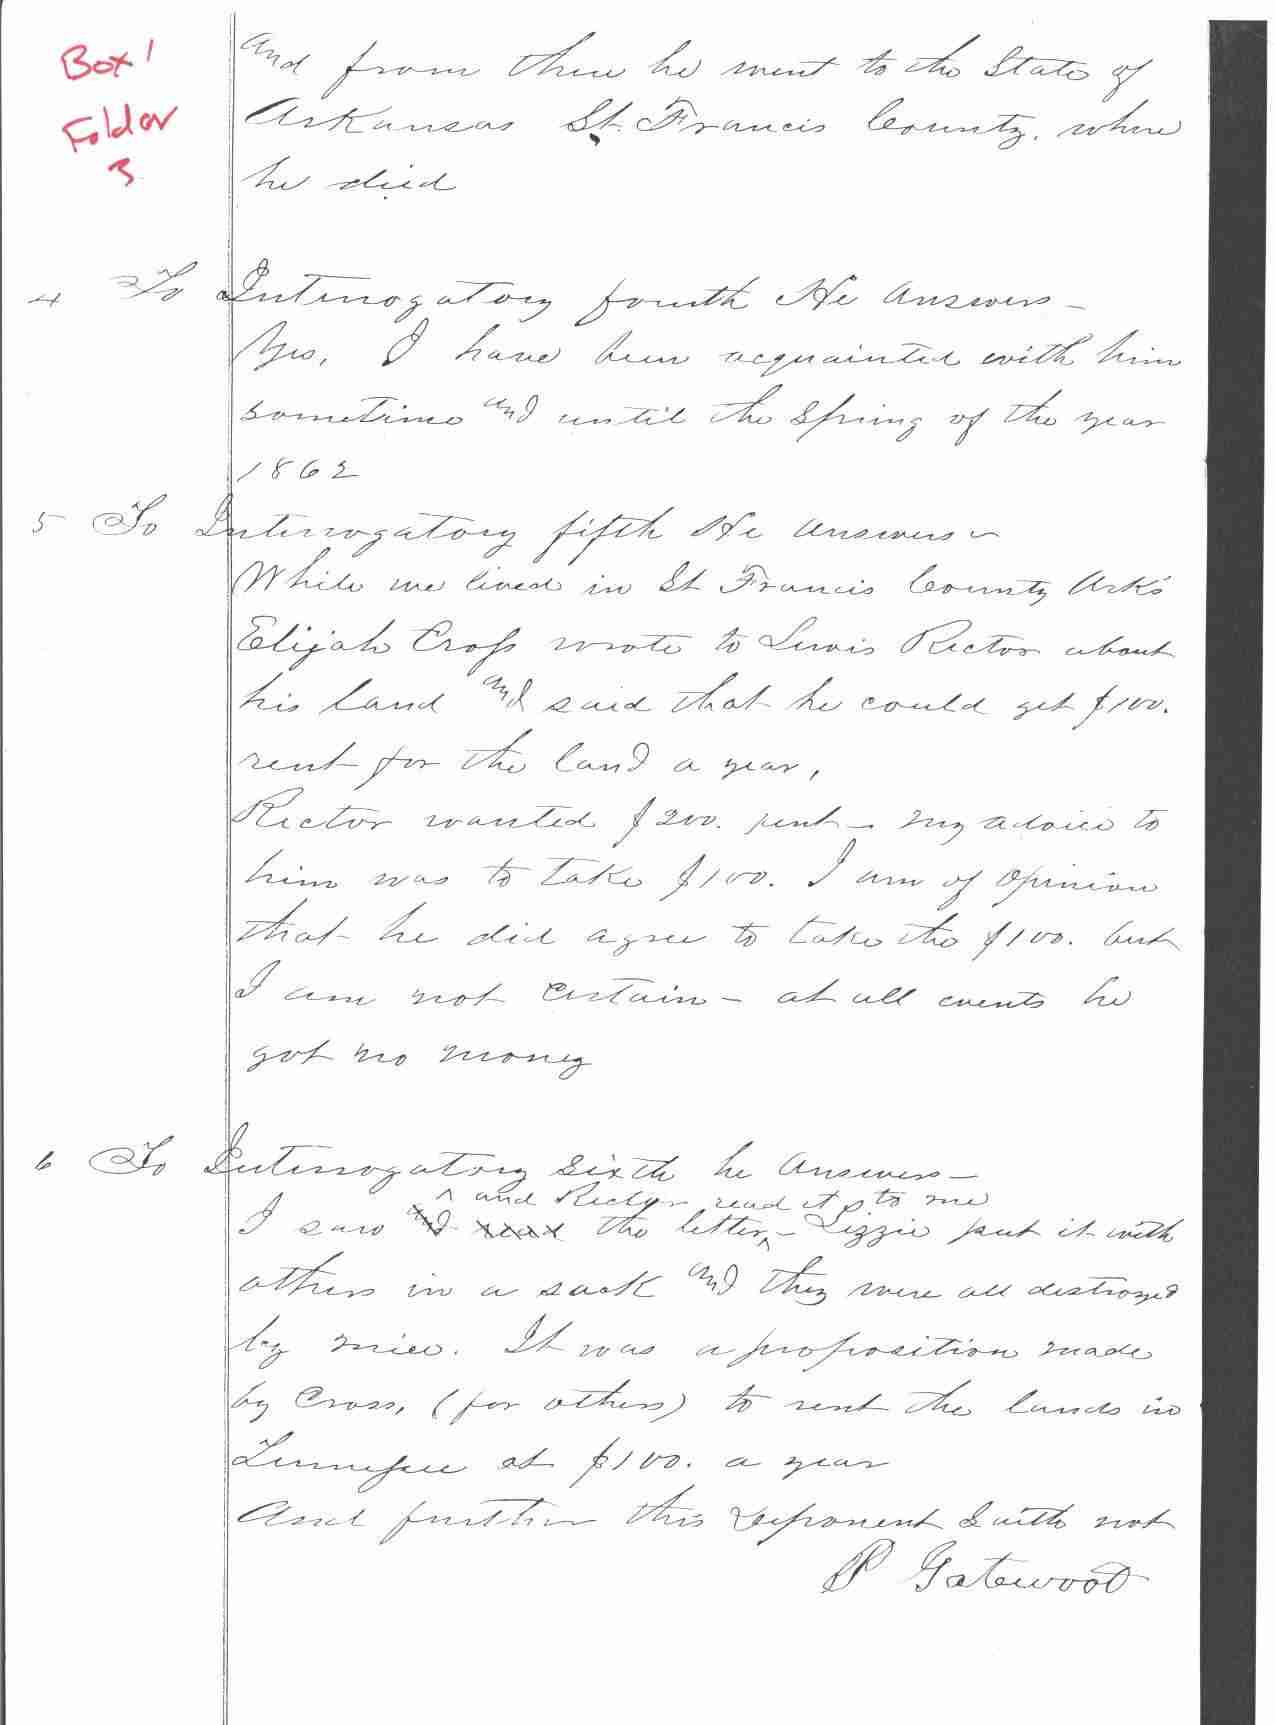 Box 1
Folder
3
and from there he went to the State of
Arkansas St. Francis County. where
he died
4 To Interrogatory fourth He answers -
Yes, I have been acquainted with him
sometime and until the Spring of the year
1862
5 To Interrogatory fifth He answers -
While we lived in St Francis County Arks
Elijah Cross wrote to Lewis Rector about
his land and said that he could get $100.
rent for the land a year,
Rector wanted $200. rent - my advice to
him was to take $100. I am of opinion
that he did agree to take the $100. but
I am not certain - at all events he
got no money
6 To Interrogatory Sixth he answers -
^ and Rector read it to me
I saw and read the letter, - Lizzie put it with
others in a sack and they were all destroyed
by mice. It was a proposition made
by Cross, (for others) to rent the lands in
Tennessee at $100. a year
And further this deponent Saith not
P Gatewood